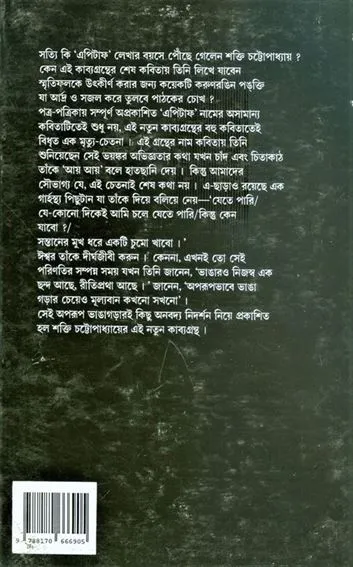 সত্যি কি 'এপিটাফ' লেখার বয়সে পৌঁছে গেলেন শক্তি চট্টোপাধ্যায় ?
কেন এই কাব্যগ্রন্থের শেষ কবিতায় তিনি লিখে যাবেন
স্মৃতিফলকে উৎকীর্ণ করার জন্য কয়েকটি করুণরঙিন পঙ্‌ক্তি
যা আর্দ্র ও সজল করে তুলবে পাঠকের চোখ ?
পত্র-পত্রিকায় সম্পূর্ণ অপ্রকাশিত 'এপিটাফ' নামের অসামান্য
কবিতাটিতেই শুধু নয়, এই নতুন কাব্যগ্রন্থের বহু কবিতাতেই
বিধৃত এক মৃত্যু-চেতনা । এই গ্রন্থের নাম কবিতায় তিনি
শুনিয়েছেন সেই ভয়ঙ্কর অভিজ্ঞতার কথা যখন চাঁদ এবং চিতাকাঠ
তাঁকে 'আয় আয়' বলে হাতছানি দেয় । কিন্তু আমাদের
সৌভাগ্য যে, এই চেতনাই শেষ কথা নয় । এ-ছাড়াও রয়েছে এক
গার্হস্থ্য পিছুটান যা তাঁকে দিয়ে বলিয়ে নেয়—'যেতে পারি/
যে-কোনো দিকেই আমি চলে যেতে পারি/কিন্তু কেন
যাবো ?/
সন্তানের মুখ ধরে একটি চুমো খাবো । '
ঈশ্বর তাঁকে দীর্ঘজীবী করুন । কেননা, এখনই তো সেই
পরিণতির সম্পন্ন সময় যখন তিনি জানেন, 'ভাঙারও নিজস্ব এক
ছন্দ আছে, রীতিপ্রথা আছে । ' জানেন, 'অপরূপভাবে ভাঙা
গড়ার চেয়েও মূল্যবান কখনো সখনো' ।
সেই অপরূপ ভাঙাগড়ারই কিছু অনবদ্য নিদর্শন নিয়ে প্রকাশিত
হল শক্তি চট্টোপাধ্যায়ের এই নতুন কাব্যগ্রন্থ ।
9 788170 666905